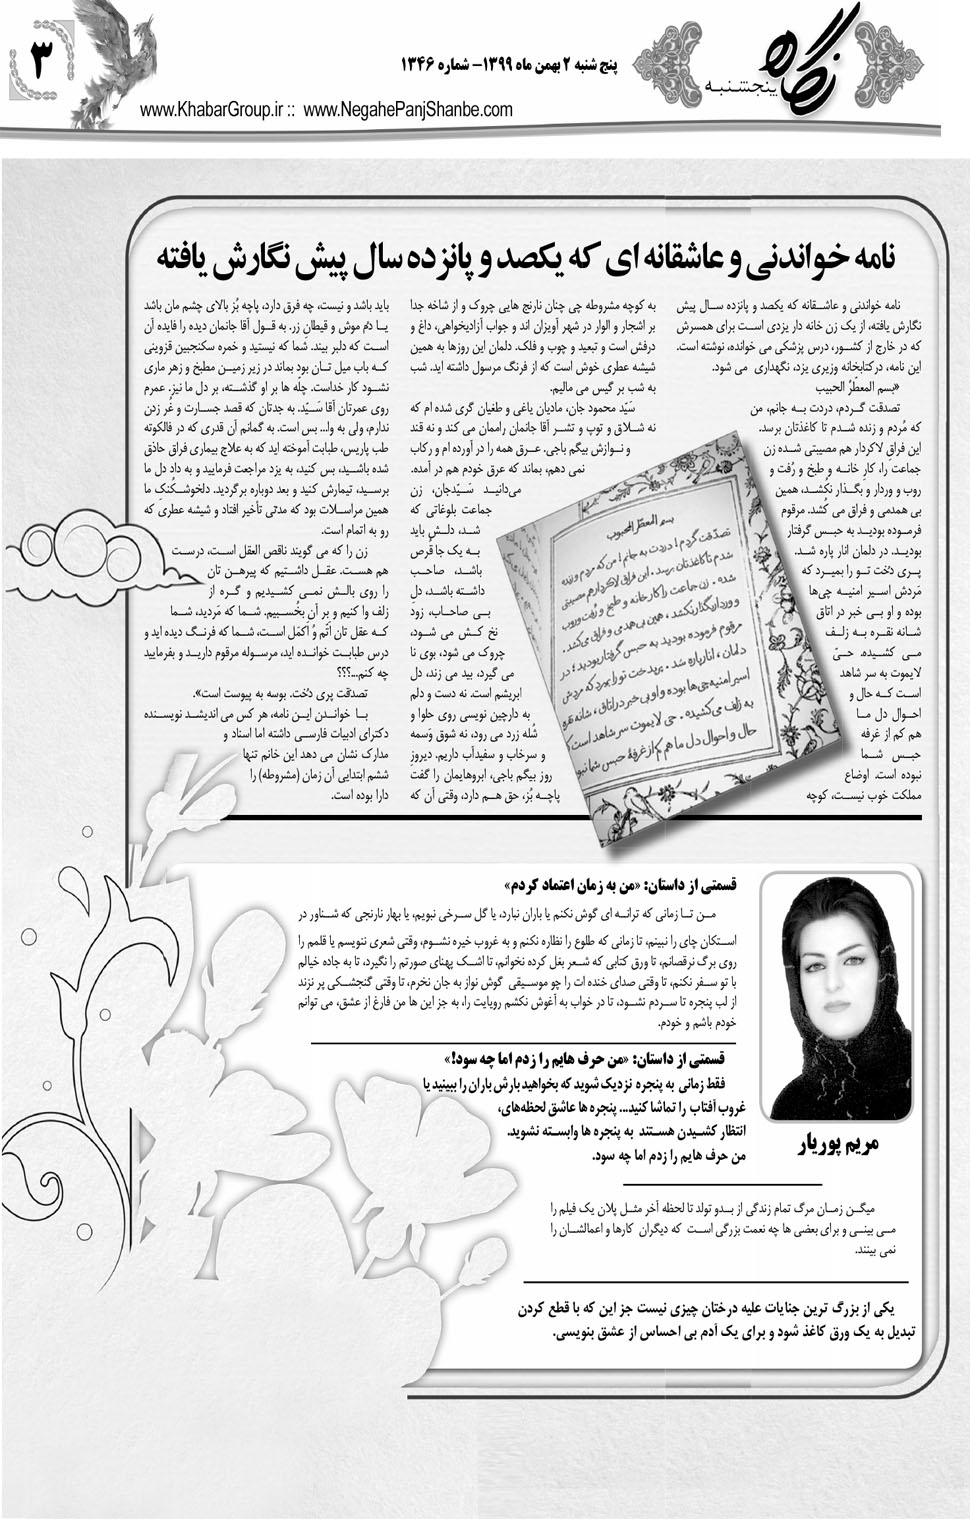 نگاه
پنجشنبه
پنج شنبه ۲ بهمن ماه ۱۳۹۹- شماره ۱۳۴۶
www.KhabarGroup.ir :: www.NegahePanjShanbe.com
۳
نامه خواندنی و عاشقانه ای که یکصد و پانزده سال پیش نگارش یافته
نامه خواندنی و عاشـقانه که یکصد و پانزده سـال پیش
نگارش یافته، از یک زن خانه دار یزدی اسـت برای همسرش
که در خارج از کشـور، درس پزشکی می خوانده، نوشته است.
این نامه، درکتابخانه وزیری یزد، نگهداری می شود.
«بسم المعطّرُ الحبیب
تصدقت گـردم، دردت بـه جانم، من
که مُردم و زنده شـدم تا کاغذتان برسد.
این فراقِ لاکردار هم مصیبتی شـده زن
جماعت را، کارِ خانـه و طبخ و رُفت و
روب و وردار و بگـذار نکِشـد، همین
بی همدمی و فراق می کشد. مرقوم
فرموده بودیـد به حبـس گرفتار
بودیـد. در دلمان انار پاره شـد.
پـری دُخت تـو را بمیرد که
مَردش اسیر امنیه چی‌ها
بوده و او بـی خبر در اتاق
شـانه نقـره بـه زلـف
مـی کشیده. حـیّ
لایموت به سر شاهد
اسـت کـه حال و
احـوال دل مـا
هم کم از غرفه
حبـس شـما
نبوده است. اوضاع
مملکت خوب نیسـت، کوچه
به کوچه مشروطه چی چنان نارنج هایی چروک و از شاخه جدا
بر اشجار و الوار در شهر آویزان اند و جواب آزادیخواهی، داغ و
درفش است و تبعید و چوب و فلک. دلمان این روزها به همین
شیشه عطری خوش است که از فرنگ مرسول داشته اید. شب
به شب بر گیس می مالیم.
سَیّد محمود جان، مادیان یاغی و طغیان گری شده ام که
نه شـلاق و توپ و تشـر آقا جانمان راممان می کند و نه قند
و نـوازش بیگم باجی، عـرق همه را در آورده ام و رکاب
نمی دهم، بماند که عرق خودم هم در آمده.
می‌دانیـد سَـیّدجان، زن
جماعت بلوغاتی که
شـد، دلـش باید
بـه یـک جا قُرص
باشـد، صاحـب
داشـته باشـد، دل
بـی صاحـاب، زودْ
نخ کـش می شـود،
چروک می شود، بوی نا
می گیرد، بید می زند، دل
ابریشم است. نه دست و دلم
به دارچین نویسی روی حلوا و
شُله زرد می رود، نه شوق وَسمه
و سرخاب و سفیدآب داریم. دیروز
روز بیگم باجی، ابروهایمان را گفت
پاچـه بُز، حق هـم دارد، وقتی آن که
باید باشد و نیست، چه فرق دارد، پاچه بُز بالای چشم مان باشد
یـا دم موش و قیطان زر. به قـول آقا جانمان دیده را فایده آن
است که دلبر بیند. شما که نیستید و خمره سکنجبین قزوینی
کـه باب میل تـان بود بماند در زیر زمیـن مطبخ و زهر ماری
نشـود کار خداست. چلّه ها بر او گذشـته، بر دل ما نیز. عمرم
روی عمرتان آقا سَـیّد. به جدتان که قصد جسـارت و غُر زدن
ندارم، ولی به وا... بس است. به گمانم آن قدری که در فالکوته
طب پاریس، طبابت آموخته اید که به علاج بیماری فراق حاذق
شده باشـید، بس کنید، به یزد مراجعت فرمایید و به داد دل ما
برسـید، تیمارش کنید و بعد دوباره برگردید. دلخوشـکُنَک ما
همین مراسـلات بود که مدتی تأخیر افتاد و شیشه عطری که
رو به اتمام است.
زن را که می گویند ناقص العقل اسـت، درسـت
هم هسـت. عقـل داشـتیم که پیرهـن تان
را روی بالش نمـی کشـیدیم و گـره از
زلف وا کنیم و بر آن بخُسـبیم. شما که مَردید، شما
کـه عقل تان اَتّم وُ اَکمَل است، شـما که فرنگ دیده اید و
درس طبابت خوانـده اید، مرسـوله مرقوم داریـد و بفرمایید
چه کنم...؟؟؟
تصدقت پری دُخت. بوسه به پیوست است».
بـا خوانـدن این نامه، هر کس می اندیشـد نویسـنده
دکترای ادبیات فارسـی داشته اما اسناد و
مدارک نشان می دهد این خانم تنها
ششم ابتدایی آن زمان (مشروطه) را
دارا بوده است.
بسم المعطّر الحبیب
تصدقت گردم! دردت به جانم! من که مردم و زنده
شدم تا کاغذتان برسد. این فراق لاکردار هم مصیبتی
شده. زن جماعت را کار خانه و طبخ و رُفت و روب
و وردار بگذار نکشد، همین بی همدمی و فراق می کشد.
مرقوم فرموده بودید به حبس گرفتار بودید؛ در
دلمان، انار پاره شد. پریدخت تو را بمیرد که مردش
اسیر امنیه چی ها بوده و او بی خبر در اتاق، شانه نقره
به زلف می کشیده. حی لایموت سر شاهد است که
حال و احوال دل ما هم کم از غرفهٔ حبس شما نبو
مریم پوریار
قسمتی از داستان: «من به زمان اعتماد کردم»
مـن تـا زمانی که ترانـه ای گوش نکنم یا باران نبارد، یا گل سـرخی نبویم، یا بهار نارنجی که شـناور در
اسـتکان چای را نبینم، تا زمانی که طلوع را نظاره نکنم و به غروب خیره نشـوم، وقتی شعری ننویسم یا قلمم را
روی برگ نرقصانم، تا ورق کتابی که شـعر بغل کرده نخوانم، تا اشـک پهنای صورتم را نگیرد، تا به جاده خیالم
با تو سـفر نکنم، تا وقتی صدای خنده ات را چو موسـیقی گوش نواز به جان نخرم، تا وقتی گنجشـکی پر نزند
از لب پنجره تا سـردم نشـود، تا در خواب به آغوش نکشم رویایت را، به جز این ها من فارغ از عشق، می توانم
خودم باشم و خودم.
قسمتی از داستان: «من حرف هایم را زدم اما چه سود!»
فقط زمانی به پنجره نزدیک شوید که بخواهید بارش باران را ببینید یا
غروب آفتاب را تماشا کنید... پنجره ها عاشق لحظه‌های،
انتظار کشـیدن هسـتند به پنجره ها وابسـته نشوید.
من حرف هایم را زدم اما چه سود.
میگـن زمـان مرگ تمام زندگی از بـدو تولد تا لحظه آخر مثـل پلان یک فیلم را
مـی بینـی و برای بعضی ها چه نعمت بزرگی اسـت که دیگران کارها و اعمالشـان را
نمی بینند.
یکی از بزرگ ترین جنایات علیه درختان چیزی نیست جز این که با قطع کردن
تبدیل به یک ورق کاغذ شود و برای یک آدم بی احساس از عشق بنویسی.